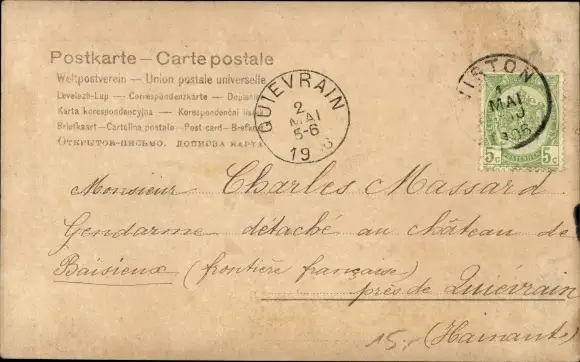 Postkarte – Carte postale
Weltpostverein – Union postale universelle
Levelezö-Lap – Correspondenzkarte – Dopisnice
Karta korespondencyjna – Korespondenční lístek
Briefkaart – Cartolina postale – Post card – Brefkort
Открытое-письмо. дописна карта
QUIEVRAIN
2
MAI
5-6
19
VIRTON
1
MAI
1906
5c 5c
Monsieur Charles Massard
Gendarme détaché au château de
Baisieux (frontière française)
près de Quiévrain
(Hainaut)
15.-